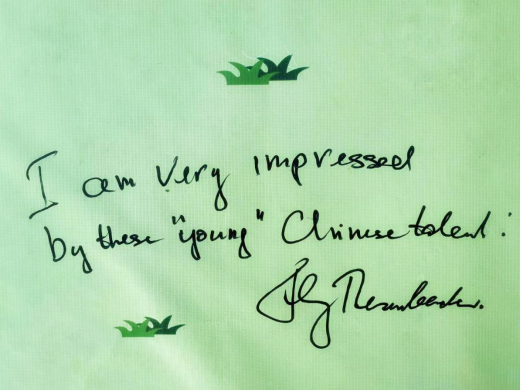 I am very impressed
by these "young" Chinese talent!